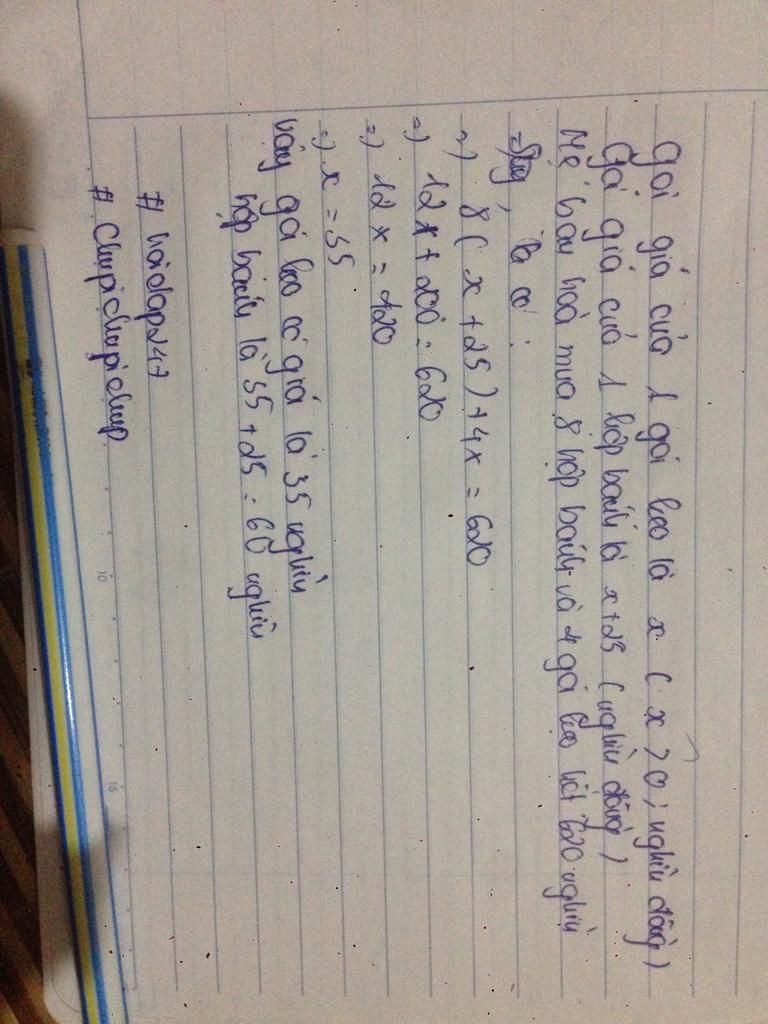 Gọi giá của 1 gói kẹo là x ( x > 0 ; nghìn đồng )
Gọi giá của 1 hộp bánh là x + 25 ( nghìn đồng )
Mẹ bạn hoà mua 8 hộp bánh và 4 gói kẹo hết 620 nghìn
ta có :
=) 8 ( x + 25 ) + 4x = 620
=) 12 x + 200 = 620
=) 12 x = 420
=) x = 35
Vậy gói kẹo có giá là 35 nghìn
hộp bánh là 35 + 25 = 60 nghìn
# hoidap247
# Chupichupichup
10
15